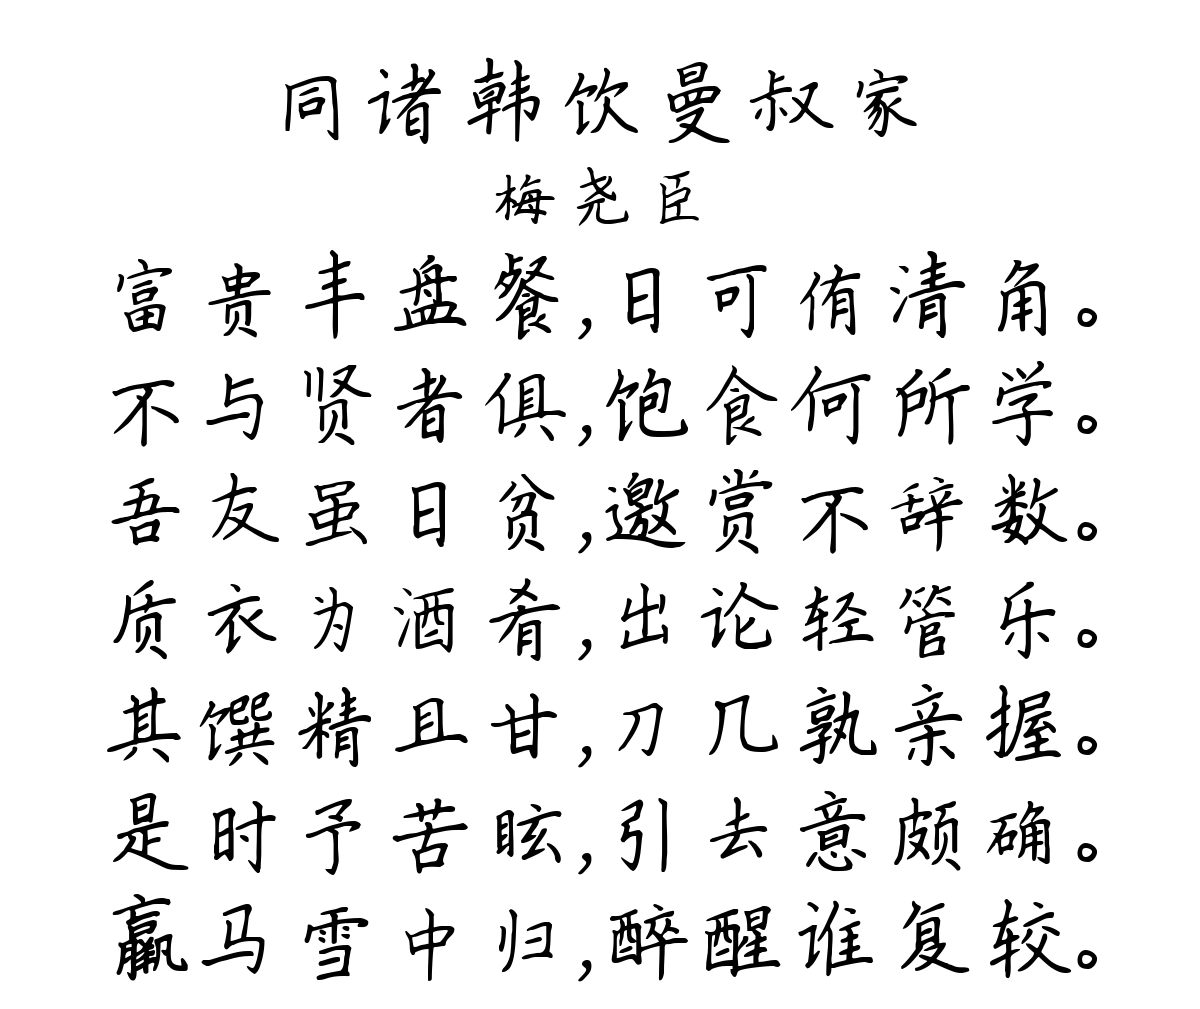 同诸韩饮曼叔家
梅尧臣
富贵丰盘餐,日可侑清角。
不与贤者俱,饱食何所学。
吾友虽日贫,邀赏不辞数。
质衣为酒肴,出论轻管乐。
其馔精且甘,刀几孰亲握。
是时予苦眩,引去意颇确。
赢马雪中归,醉醒谁复较。